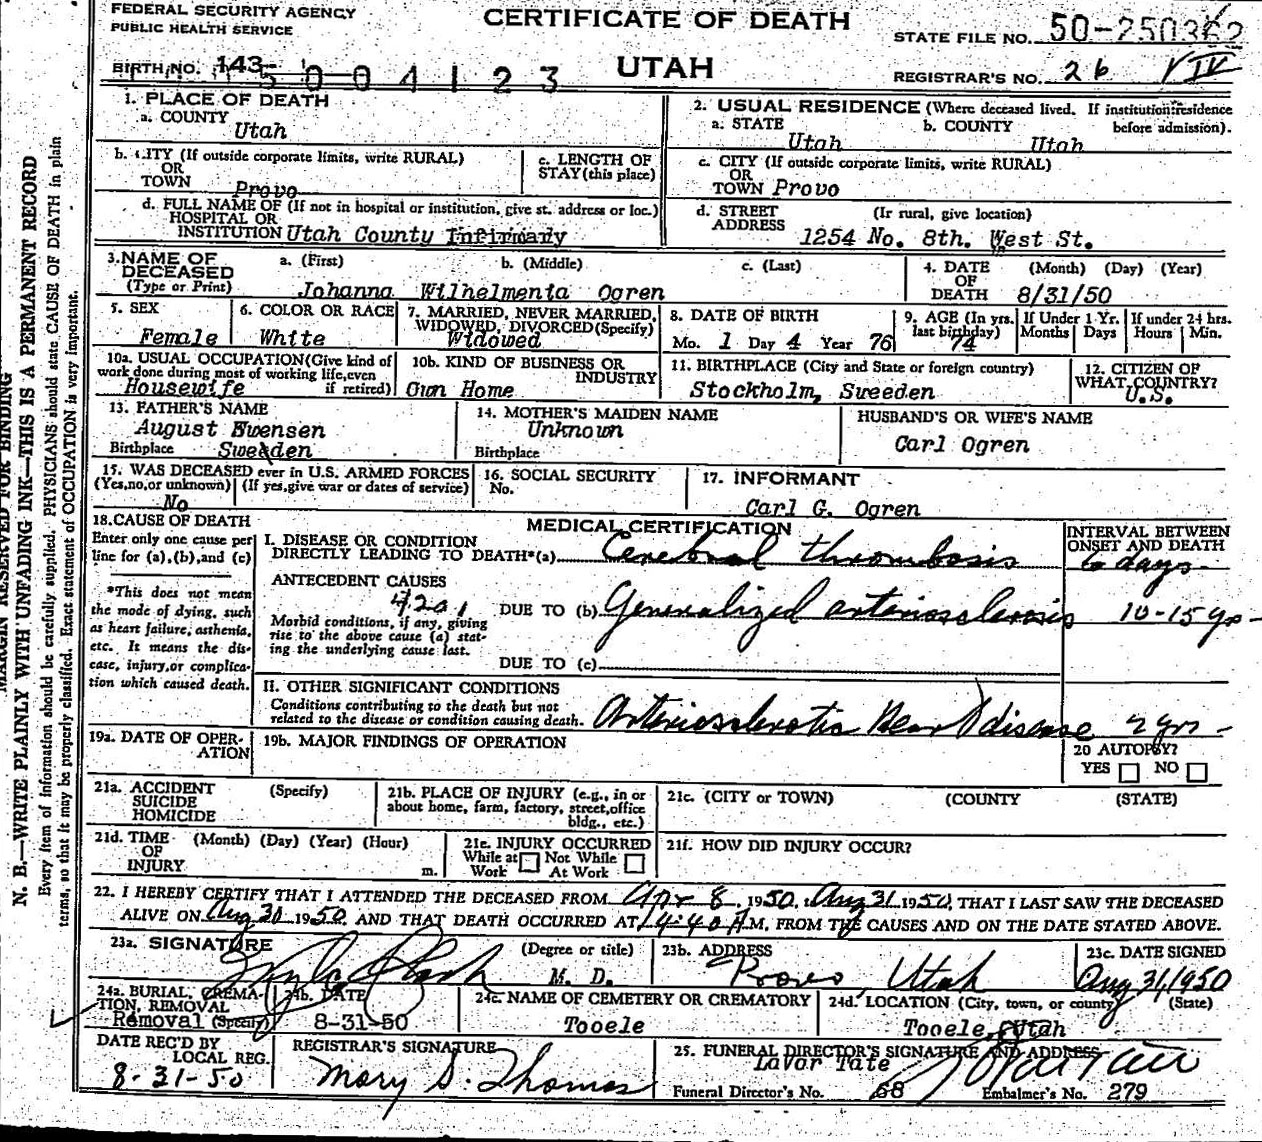 FEDERAL SECURITY AGENCY
PUBLIC HEALTH SERVICE
CERTIFICATE OF DEATH
STATE FILE NO. 50-250362
BIRTH NO. 143-
15004123
UTAH
REGISTRAR'S NO. 26 IV
1. PLACE OF DEATH
a. COUNTY
Utah
2. USUAL RESIDENCE (Where deceased lived. If institution: residence before admission).
a. STATE b. COUNTY
Utah Utah
b. CITY (If outside corporate limits, write RURAL)
OR
TOWN Provo
c. LENGTH OF
STAY (this place)
c. CITY (If outside corporate limits, write RURAL)
OR
TOWN Provo
d. FULL NAME OF (If not in hospital or institution, give st. address or loc.)
HOSPITAL OR
INSTITUTION Utah County Infirmady
d. STREET (If rural, give location)
ADDRESS
1254 No. 8th. West St.
3. NAME OF DECEASED
(Type or Print)
a. (First) b. (Middle) c. (Last)
Johanna Wilhelmenia Ogren
4. DATE (Month) (Day) (Year)
OF
DEATH 8/31/50
5. SEX
Female
6. COLOR OR RACE
White
7. MARRIED, NEVER MARRIED,
WIDOWED, DIVORCED (Specify)
Widowed
8. DATE OF BIRTH
Mo. 1 Day 4 Year 76
9. AGE (In yrs. last birthday)
74
If Under 1 Yr.
Months Days
If under 24 hrs.
Hours Min.
10a. USUAL OCCUPATION (Give kind of
work done during most of working life, even
if retired)
Housewife
10b. KIND OF BUSINESS OR
INDUSTRY
Own Home
11. BIRTHPLACE (City and State or foreign country)
Stockholm, Sweeden
12. CITIZEN OF
WHAT COUNTRY?
U.S.
13. FATHER'S NAME
August Swensen
Birthplace Sweden
14. MOTHER'S MAIDEN NAME
Unknown
Birthplace
HUSBAND'S OR WIFE'S NAME
Carl Ogren
15. WAS DECEASED ever in U.S. ARMED FORCES
(Yes, no, or unknown) (If yes, give war or dates of service)
No
16. SOCIAL SECURITY
No.
17. INFORMANT
Carl G. Ogren
18. CAUSE OF DEATH
Enter only one cause per
line for (a), (b), and (c)
*This does not mean
the mode of dying, such
as heart failure, asthenia,
etc. It means the dis-
ease, injury, or complica-
tion which caused death.
MEDICAL CERTIFICATION
INTERVAL BETWEEN
ONSET AND DEATH
I. DISEASE OR CONDITION
DIRECTLY LEADING TO DEATH*(a) Cerebral thrombosis 6 days
ANTECEDENT CAUSES
4201
DUE TO (b) Generalized arteriosclerosis 10-15 yrs
Morbid conditions, if any, giving
rise to the above cause (a) stat-
ing the underlying cause last.
DUE TO (c)
II. OTHER SIGNIFICANT CONDITIONS
Conditions contributing to the death but not
related to the disease or condition causing death. Arteriosclerotic Heart disease 2 yrs
19a. DATE OF OPER-
ATION
19b. MAJOR FINDINGS OF OPERATION
20 AUTOPSY?
YES NO
21a. ACCIDENT (Specify)
SUICIDE
HOMICIDE
21b. PLACE OF INJURY (e.g., in or
about home, farm, factory, street, office
bldg., etc.)
21c. (CITY or TOWN) (COUNTY) (STATE)
21d. TIME (Month) (Day) (Year) (Hour)
OF
INJURY m.
21e. INJURY OCCURRED
While at Not While
Work At Work
21f. HOW DID INJURY OCCUR?
22. I HEREBY CERTIFY THAT I ATTENDED THE DECEASED FROM Apr 8, 1950, t Aug 31 1950, THAT I LAST SAW THE DECEASED
ALIVE ON Aug 30 1950 AND THAT DEATH OCCURRED AT 4:40 A M. FROM THE CAUSES AND ON THE DATE STATED ABOVE.
23a. SIGNATURE (Degree or title)
M. D.
23b. ADDRESS
Provo, Utah
23c. DATE SIGNED
Aug 31, 1950
24a. BURIAL, CREMA-
TION, REMOVAL
Removal (Specify)
24b. DATE
8-31-50
24c. NAME OF CEMETERY OR CREMATORY
Tooele
24d. LOCATION (City, town, or county) (State)
Tooele, Utah
DATE REC'D BY
LOCAL REG.
8-31-50
REGISTRAR'S SIGNATURE
Mary S. Thomas
25. FUNERAL DIRECTOR'S SIGNATURE AND ADDRESS
LaVor Tate
Funeral Director's No. 68 Embalmer's No. 279
MARGIN RESERVED FOR BINDING
N. B.—WRITE PLAINLY WITH UNFADING INK—THIS IS A PERMANENT RECORD
Every item of information should be carefully supplied. PHYSICIANS should state CAUSE OF DEATH in plain
terms, so that it may be properly classified. Exact statement of OCCUPATION is very important.